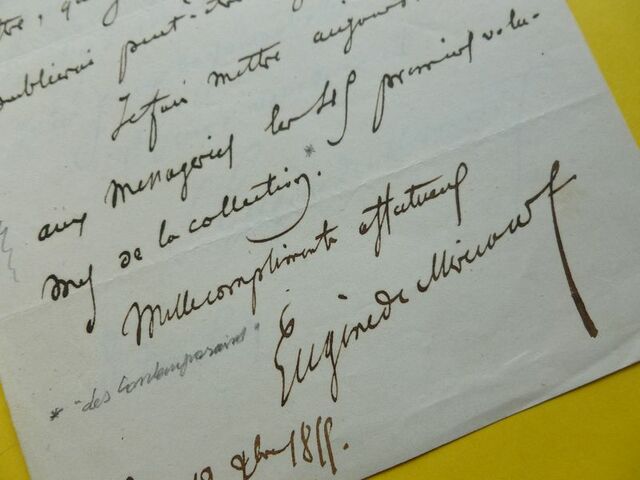 publierai peut-être
Je fais mettre aujourd
aux Messageries les 48 premiers volu-
mes de la collection. *
Mille compliments affectueux
Eugène de Mirecourt
* "des Contemporains"
1855.